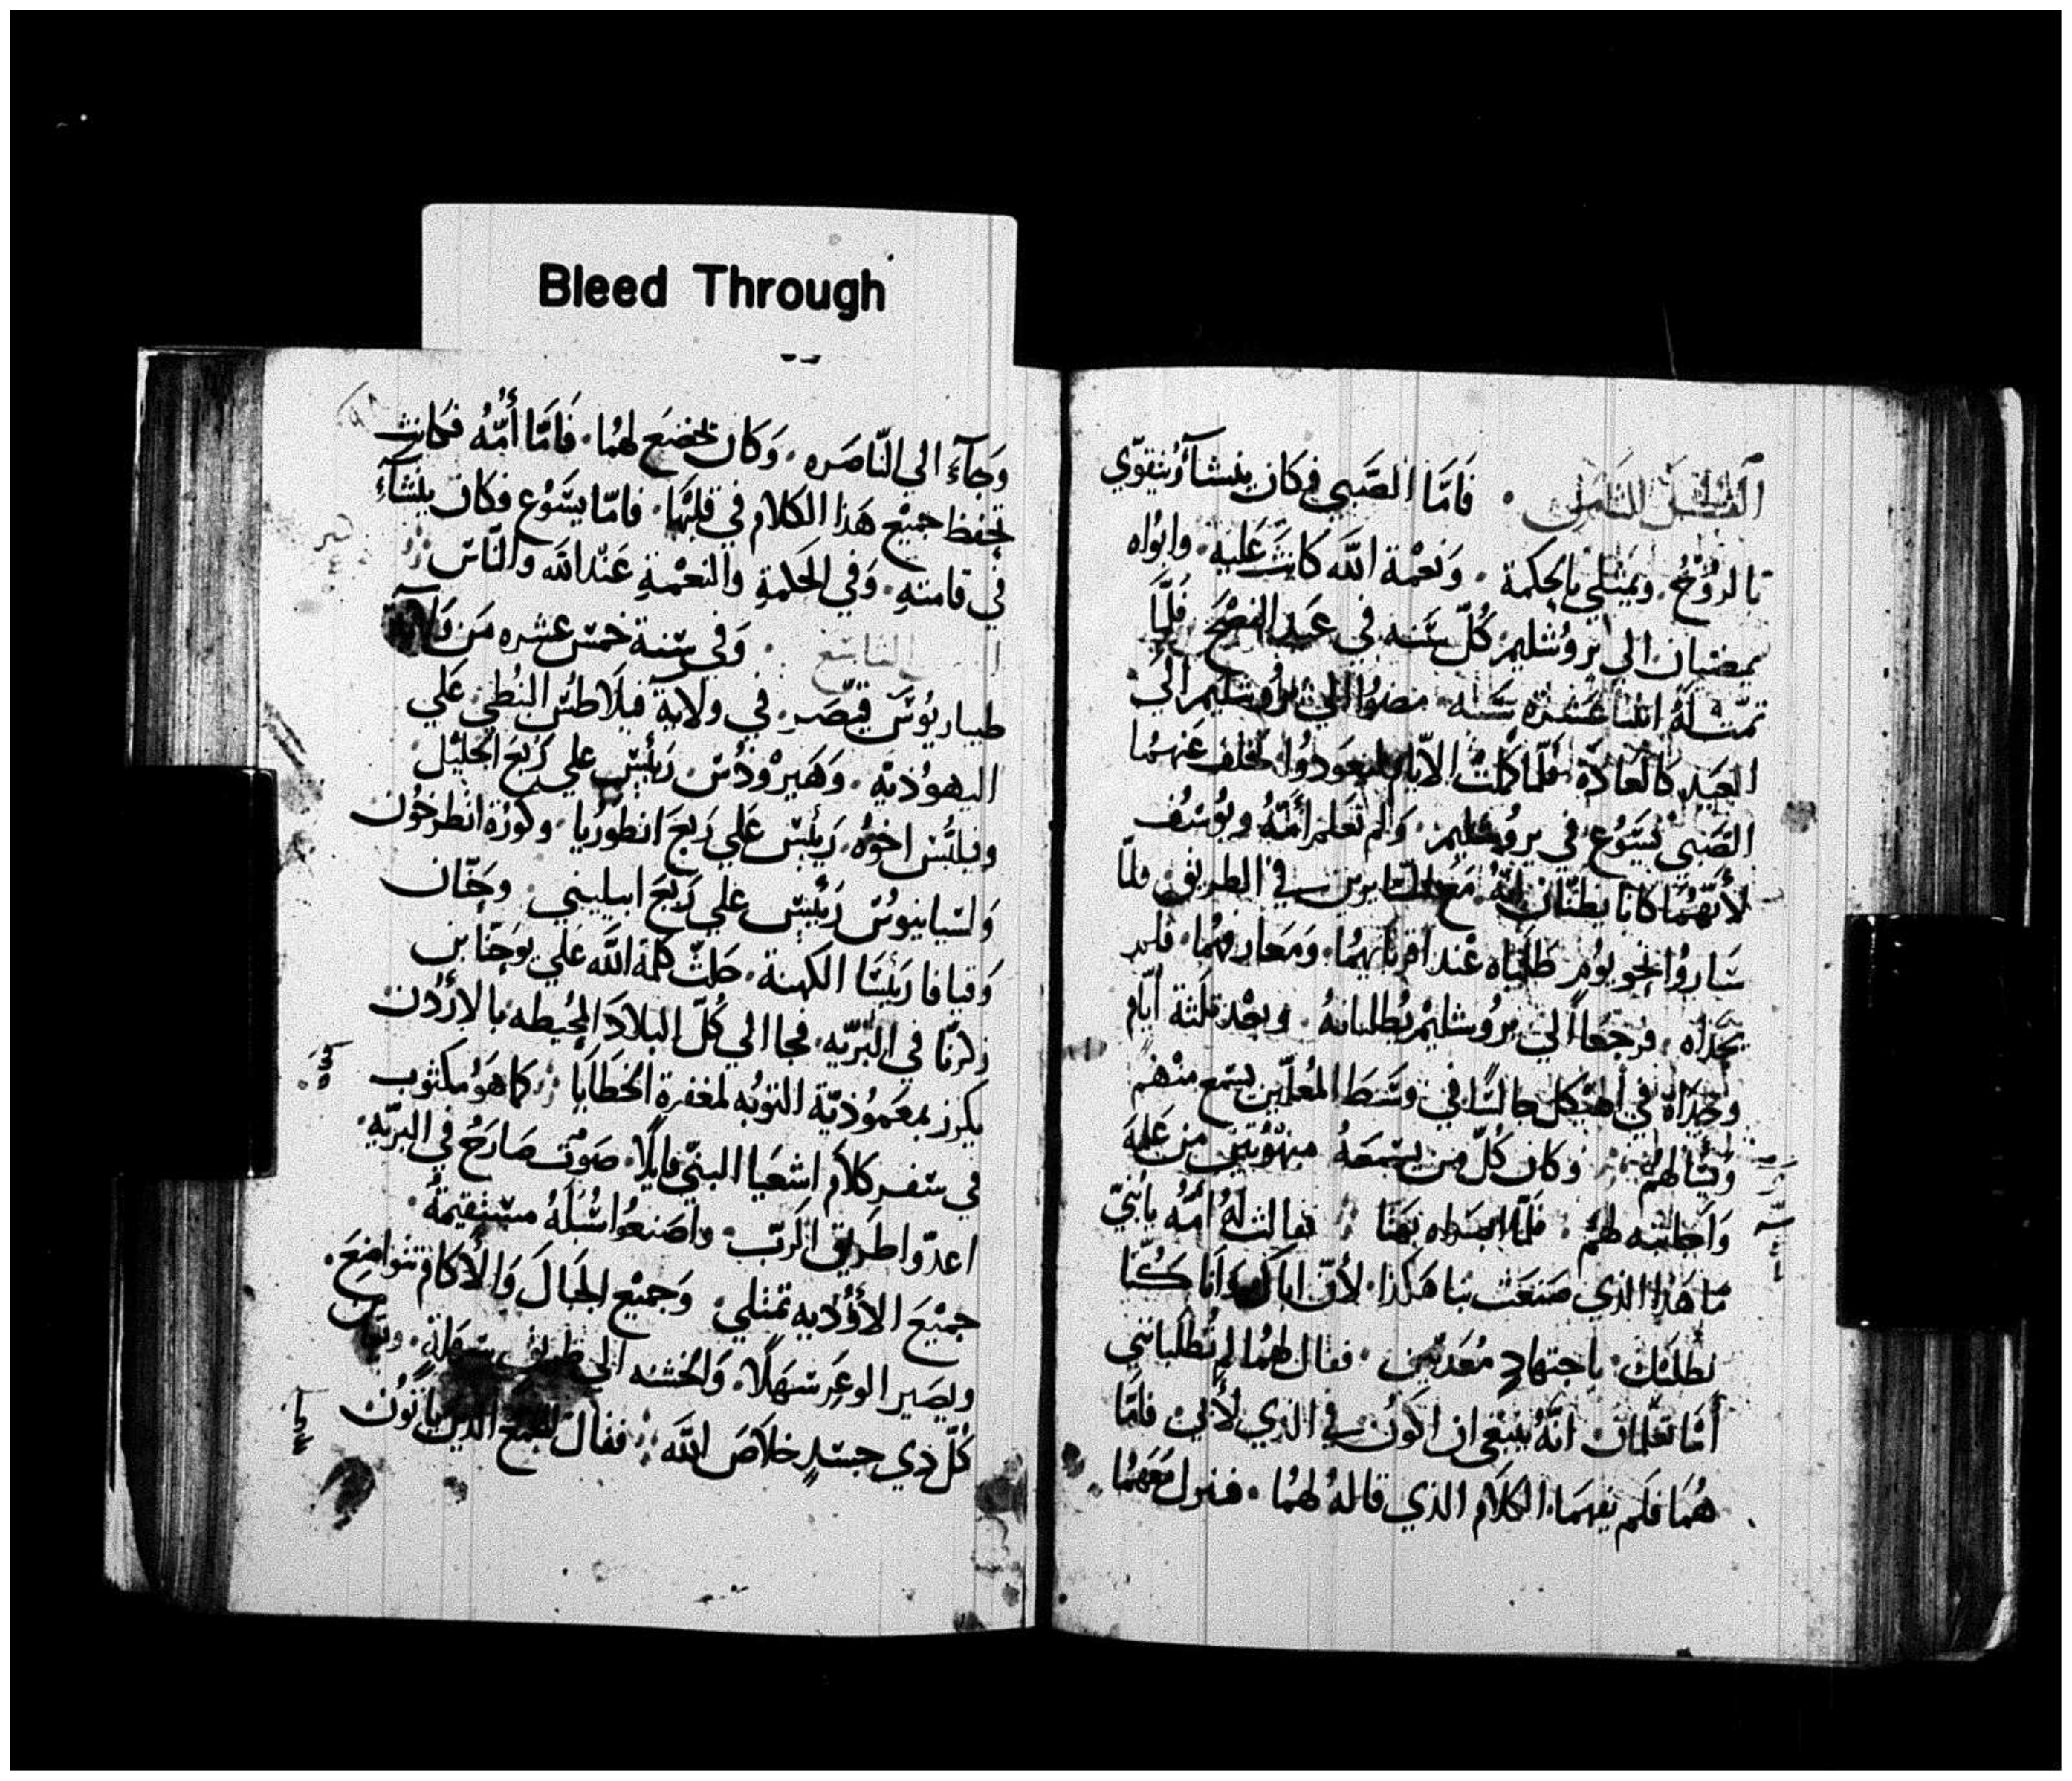 Bleed Through
فَامَّا الصَّبي فكان ينشآ وُيتقوّي
بالروُحُ. ويمَتلي بالحكمة. وَنعْمة اللّه كَانتَ عَليه. وابوُاه
يمضيان الي يروُشليمْ كُلّ سَنه في عَيد الفِصْح فَلمَّا
تمّتْ لَهُ اثنتا عَشره سَنه. مضوُا الي يروُشليم الي
العَيد كالعَادَة فلمّا كملتْ الايّام ليعَودوُا تخلف عَنهُما
الصَبيّ يَسُوع في يروُشليم. وَلم تعَلم أمّهُ ويوُسُف
لأنهُّما كانا يظنّان انّهُ مَع السّايرين في الطريق فلمّا
سَاروُا نحو يوُم طَلبَاه عْند اقربَايهُما. وَمَعارفهُما. فلم
يجَداه. فرجعَا الي يروُشليمْ يُطلبانهُ. وبعْد ثلثة أيّام
وجَداهُ في الهَيكل جالسًا في وسَطَ المُعلّمين يسَمع منْهُم
وَيسَالهُم وَكان كُلّ من يسَمعَهُ مبْهوُتين من عَلمهَ
وَاجَابته لهُم. فَلمّا ابصَراه بَهتَا فقالتْ لَهُ اُمّهُ يابُنيّ
مَا هَذا الذي صَنعَت بنا هَكذا. لأنّ اباك وَانا كُنّا
نطلبَك باجتهادٍ مُعَذبّين. فقال لهُما لِم تُطلبَانني
أمَا تعَلمان انّهُ ينبَغي ان اكوُن في الذي لأبي. فامّا
هُمَا فلم يفهمَا الكلام الذي قالهُ لهُما. فنزل مَعَهُمَا
وَجآءَ الي النّاصَره. وَكان يخضَع لهُما. فَامَّا أُمّهُ فكانت
تحفظ جميْع هَذا الكلام في قلبْهَا. فامّا يسَوُع فكان ينشآءِ
في قامتهِ. وَفي الحَكمةِ والنعْمةِ عَنْد اللّه والنّاسْ
التاسَع. وَفي سَنة خمسَ عشره من
طيباريوُسَ قيصَر. في ولاية فيلاطُسَ النبُطي عَلي
اليهوُذيّه. وَهَيروُدسُ رَئيس علي رُبعَ الجليْل
وفيلبُّسْ اخوُه. رَئيسْ عَلي رَبعَ انطوُريا. وكوُرَة انطرخوُن
وَلسَيانيوسُ رَئيسْ علي رَبعَ ابيليني. وحَنّان
وَقيافا رَئيسَا الكهنة. حَلتْ كلمة اللّه عَلي يوحَنّا بن
زكريّا في البَريّه. فجَا الي كُلّ البلاَد المُحيطه بالأرُدن
يكرز بمعَموُذيّة التوُبه لمغفرة الخَطَايا كما هَوُ مكتوب
في سَفر كلام اشعَيا النبيّ قايلاً. صَوت صَارخُ في البَريّه
اعدّوا طَريق الرَبّ. واصَنعُوا سُبُلَهُ مسَتقيمةُ
جميْعَ الأوُديه تمتلي. وَجميْع الجَبال وَالأكام تتواضعَ.
ويصَير الوعَر سَهَلاً. وَالخشنه الي طريق سَهلة.
كُلّ ذي جسَدٍ خلاَصَ اللّه فقال للجَمع الذين يأتوُن